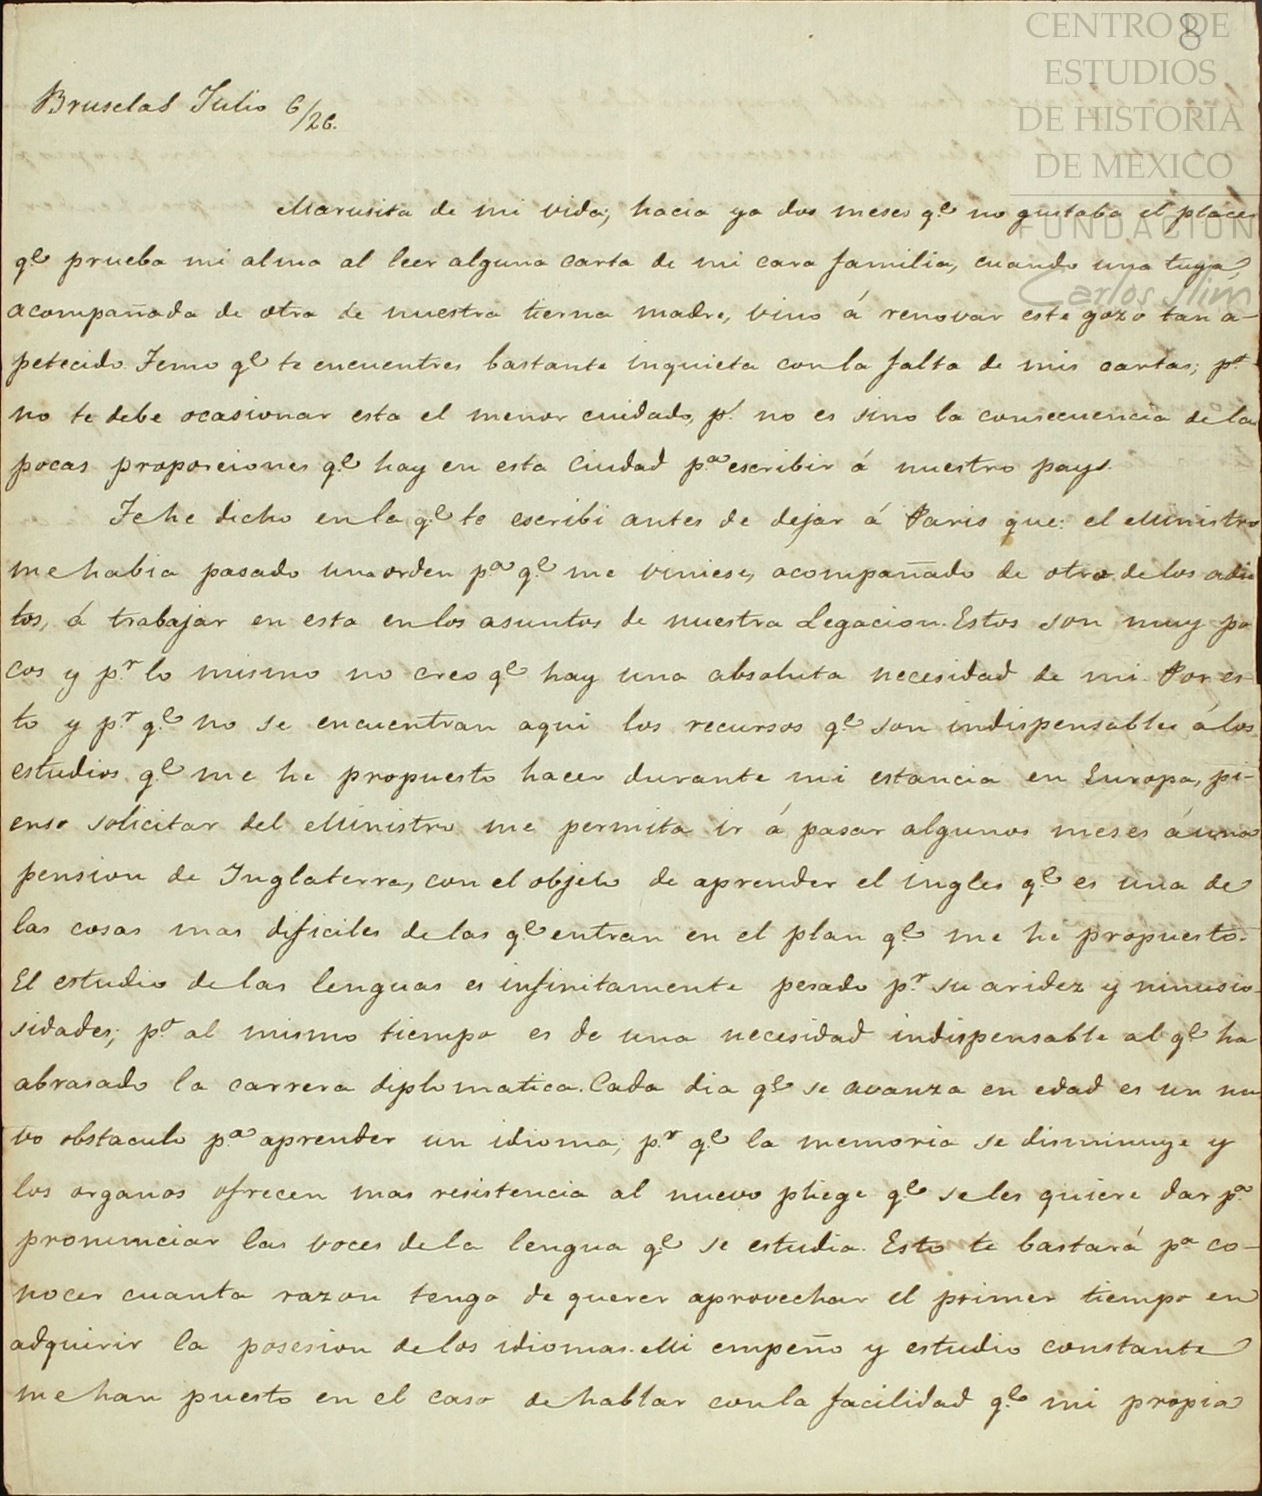 CENTRO DE
ESTUDIOS
DE HISTORIA
DE MEXICO
FUNDACION
Carlos Slim
8
Bruselas Julio 6/26.
Marusita de mi vida; hacia ya dos meses q.e no gustaba el placer
q.e prueba mi alma al leer alguna carta de mi cara familia, cuando una tuya,
acompañada de otra de nuestra tierna madre, vino á renovar este gozo tan a-
petecido. Temo q.e te encuentres bastante inquieta con la falta de mis cartas; p.o
no te debe ocasionar esta el menor cuidado, p.s no es sino la consecuencia de las
pocas proporciones q.e hay en esta Ciudad p.a escribir á nuestro pays.
Te he dicho en la q.e te escribi antes de dejar á Paris que: el Ministro
me habia pasado una orden p.a q.e me viniese, acompañado de otro de los adic
tos, á trabajar en esta en los asuntos de nuestra Legacion. Estos son muy po
cos y p.r lo mismo no creo q.e hay una absoluta necesidad de mi. Por es-
to y p.r q.e no se encuentran aqui los recursos q.e son indispensables á los
estudios q.e me he propuesto hacer durante mi estancia en Europa, pi-
enso solicitar del Ministro me permita ir á pasar algunos meses á una
pension de Inglaterra, con el objeto de aprender el ingles q.e es una de
las cosas mas dificiles de las q.e entran en el plan q.e me he propuesto.
El estudio de las lenguas es infinitamente pesado p.r su aridez y
sidades; p.o al mismo tiempo es de una necesidad indispensable al q.e ha
abrasado la carrera diplomatica. Cada dia q.e se avanza en edad es un nu
vo obstaculo p.a aprender un idioma; p.r q.e la memoria se disminuye y
los organos ofrecen mas resistencia al nuevo pliege q.e se les quiere dar p.a
pronunciar las voces de la lengua q.e se estudia. Esto te bastará p.a co-
nocer cuanta razon tengo de querer aprovechar el primer tiempo en
adquirir la posesion de los idiomas. Mi empeño y estudio constante
me han puesto en el caso de hablar con la facilidad q.e mi propia